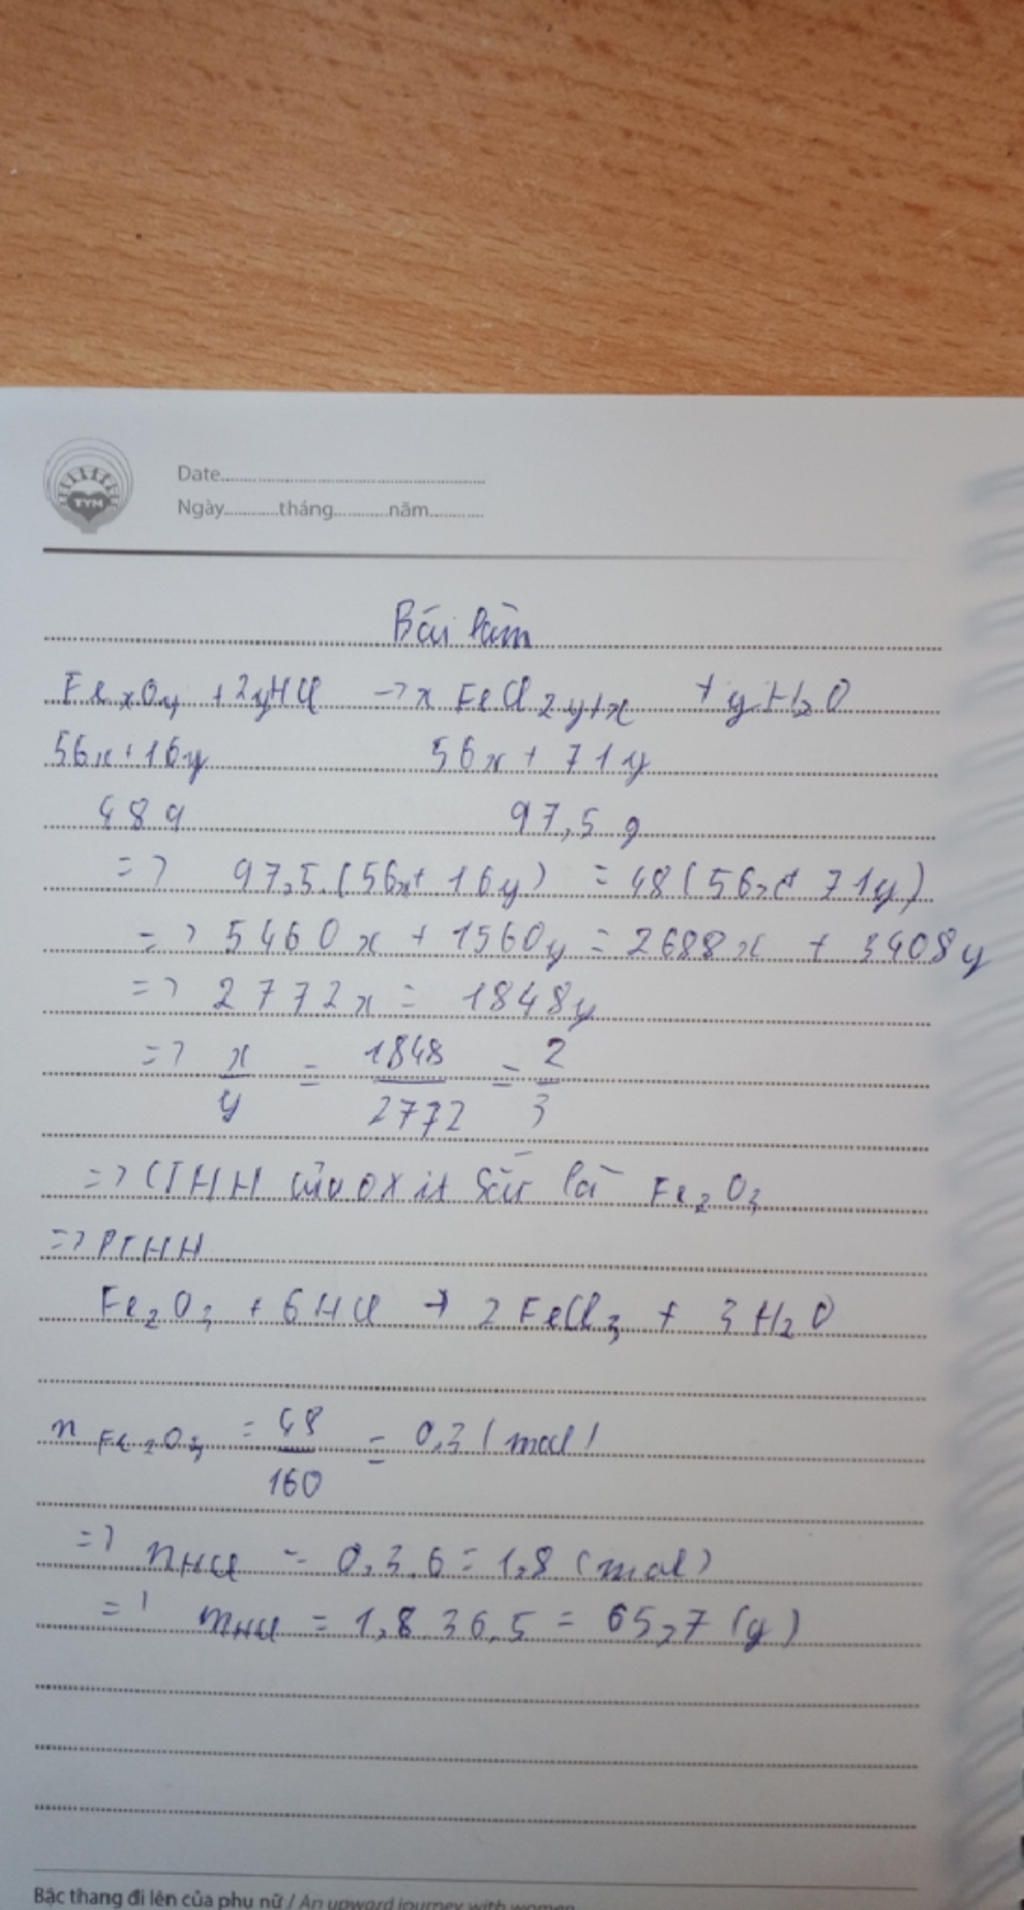 TYM
Date
Ngày tháng năm
Bài làm
FexOy + 2yHCl -> x FeCl2y/x + yH2O
56x + 16y 56x + 71y
48 g 97,5 g
=> 97,5.(56x + 16y) = 48(56x + 71y)
=> 5460x + 1560y = 2688x + 3408y
=> 2772x = 1848y
=> x/y = 1848/2772 = 2/3
=> CTHH của oxit sắt là Fe2O3
=> PTHH
Fe2O3 + 6HCl -> 2FeCl3 + 3H2O
n Fe2O3 = 48/160 = 0,3 (mol)
=> nHCl = 0,3.6 = 1,8 (mol)
=> mHCl = 1,8.36,5 = 65,7 (g)
Bậc thang đi lên của phụ nữ / An upward journey with women